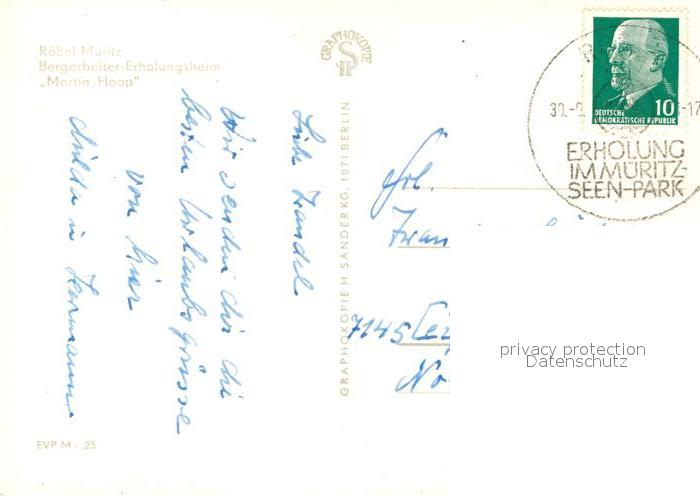 Röbel Müritz
Bergarbeiter-Erholungsheim
„Martin Hoop"
GRAPHOKOPIE
DEUTSCHE
DEMOKRATISCHE REPUBLIK
10
30.-9.
-17
ERHOLUNG
IM MÜRITZ-
SEEN-PARK
Wir senden dir die
besten Urlaubsgrüsse
von hier
Hermann
GRAPHOKOPIE H. SANDER KG, 1071 BERLIN
Frl.
7145
EVP M -,25
privacy protection
Datenschutz